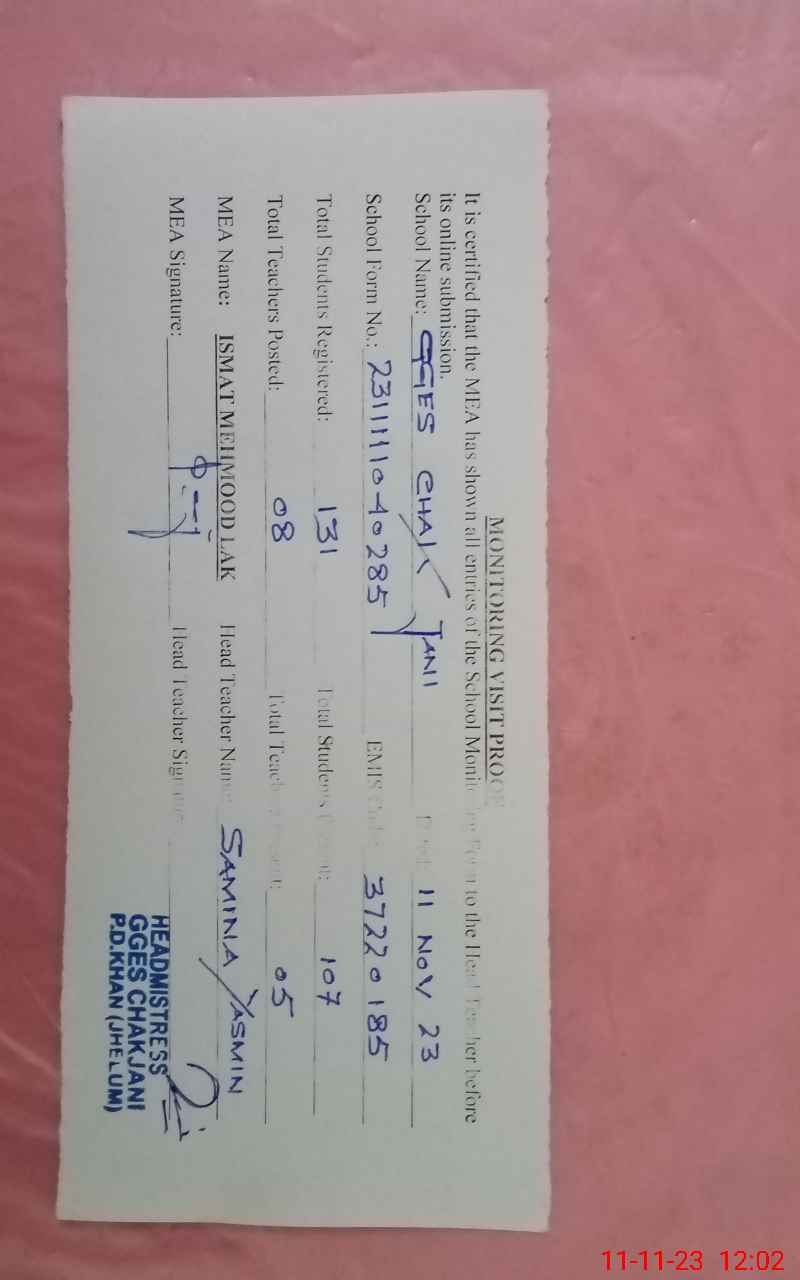 MONITORING VISIT PROOF
It is certified that the MEA has shown all entries of the School Monitoring Form to the Head Teacher before
its online submission.
School Name: GGES CHAK JANI 11 NOV 23
School Form No.: 231111040285 EMIS 37220185
Total Students Registered: 131 Total Students 107
Total Teachers Posted: 08 Total 05
MEA Name: ISMAT MEHMOOD LAK Head Teacher Name SAMINA YASMIN
MEA Signature: Head Teacher Signature
HEADMISTRESS
GGES CHAKJANI
P.D.KHAN (JHELUM)
11-11-23 12:02